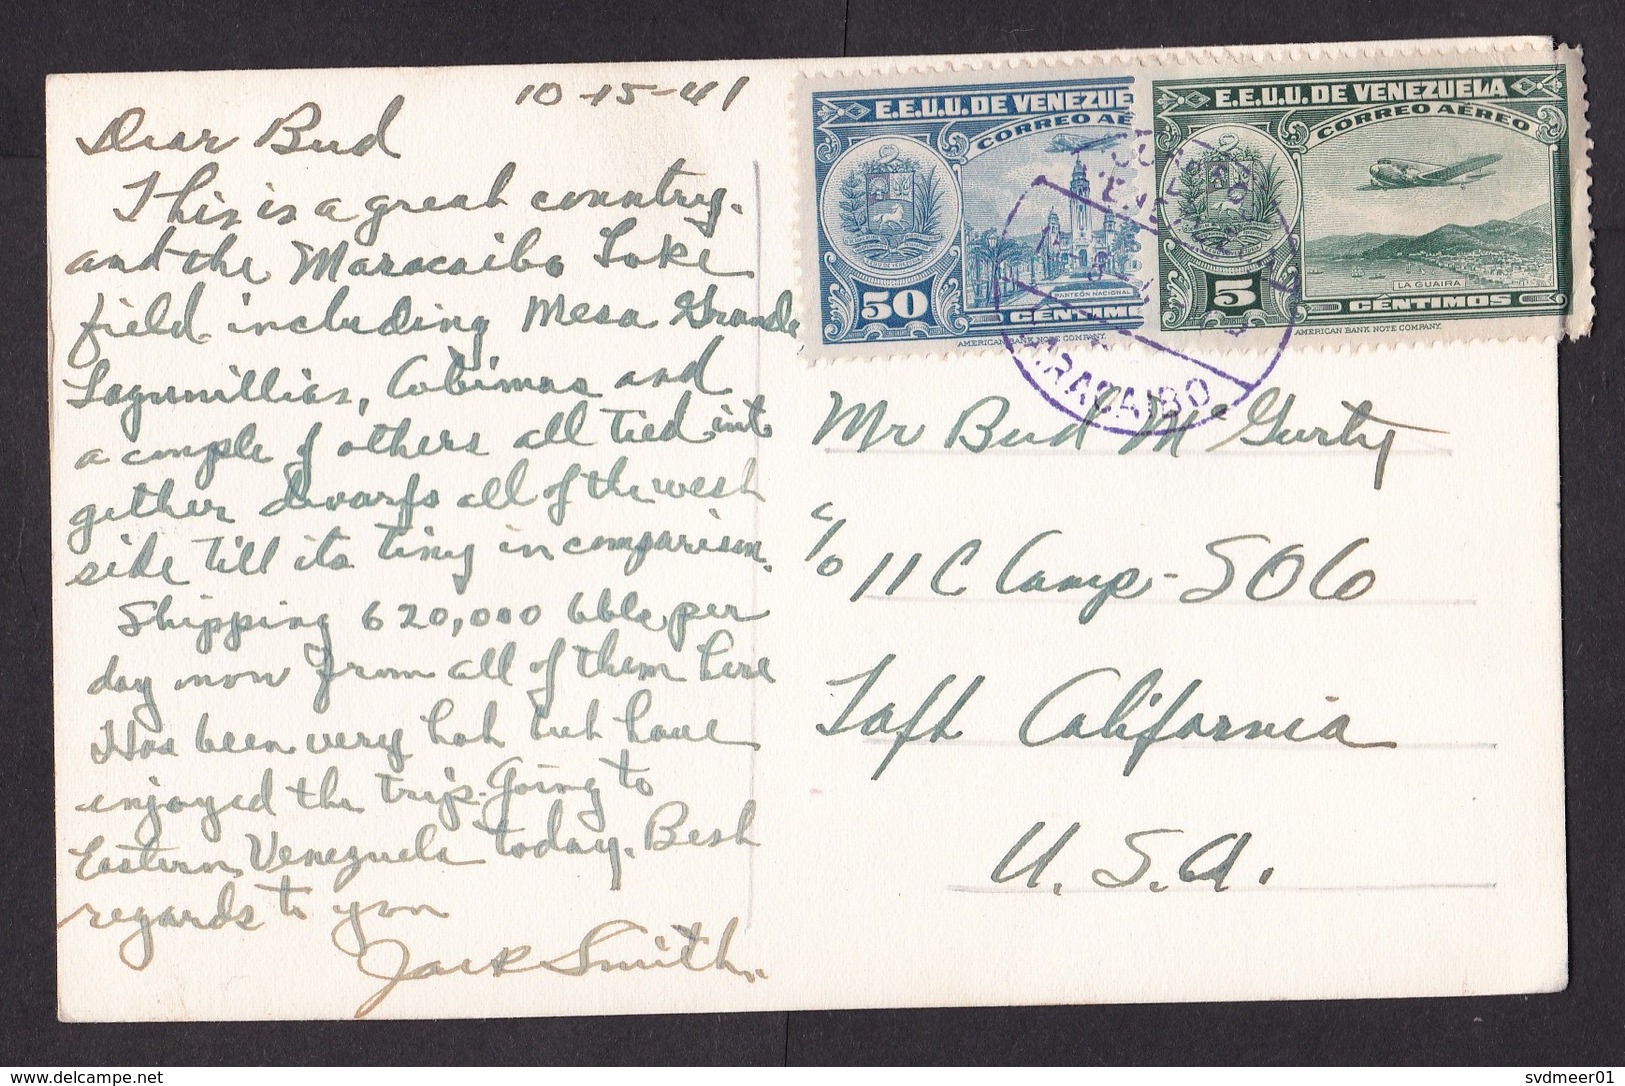 10-15-41
Dear Bud
This is a great country.
and the Maracaibo Lake
field including Mesa Grande
Lagunillias, Cabimas and
a couple of others all tied into
gether dwarfs all of the west
side till its tiny in comparison.
Shipping 620,000 bbls per
day now from all of them here
Has been very hot but have
enjoyed the trip. Going to
Eastern Venezuela today. Best
regards to you
Jack Smith.
E.E.U.U. DE VENEZUE
CORREO AÉ
50
PANTEÓN NACIONAL
CÉNTIMO
AMERICAN BANK NOTE COMPANY.
E.E.U.U. DE VENEZUELA
CORREO AÉREO
LA GUAIRA
5
CÉNTIMOS
AMERICAN BANK NOTE COMPANY.
MARACAIBO
Mr Bud McGurty
c/o 11 C Camp - SOG
Taft California
U.S.A.
svdmeer01